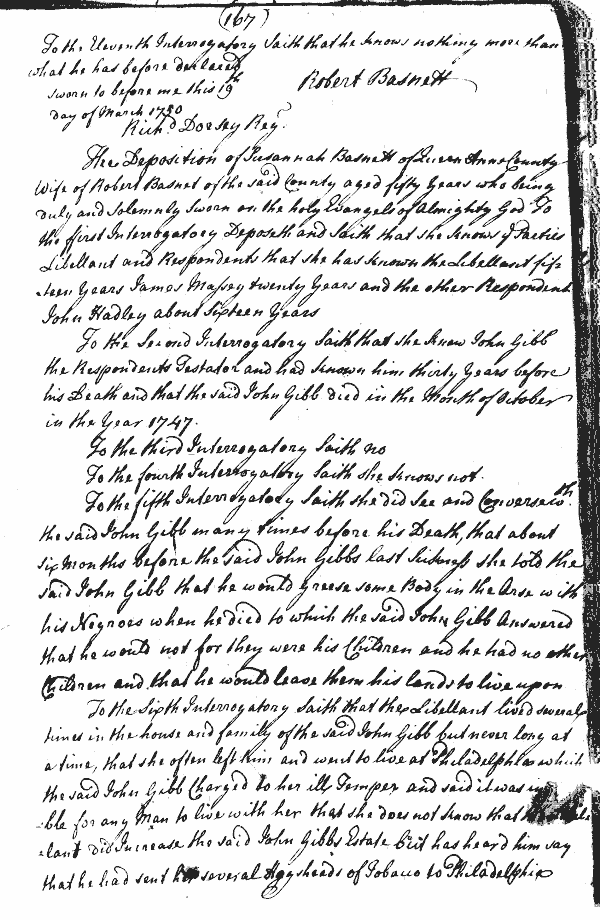 (167)
To the Eleventh Interrogatory Saith that he knows nothing more than
what he has before declared
sworn to before me this 19th Robert Basnett
day of March 1750
Richd. Dorsey Regr.
The Deposition of Susannah Basnett of Queen Anne County
Wife of Robert Basnet of the said County aged fifty Years who being
duly and solemnly Sworn on the holy Evangels of Almighty God To
the first Interrogatory Deposeth and Saith that she knows ye Parties
Libellant and Respondents that she has known the Libellant fif=
=teen Years James Massey twenty Years and the other Respondent
John Hadley about Sixteen Years
To the Second Interrogatory Saith that she knew John Gibb
the Respondents Testator and had known him thirty Years before
his Death and that the said John Gibb died in the Month of October
in the Year 1747.
To the third Interrogatory Saith no
To the fourth Interrogatory Saith she knows not.
To the fifth Interrogatory Saith she did see and Converse wth.
the said John Gibb many times before his Death, that about
Six Months before the said John Gibbs last Sickness she told the
said John Gibb that he would greese some Body in the Arse with
his Negroes when he died to which the said John Gibb Answered
that he would not for they were his Children and he had no other
Children and that he would leave them his lands to live upon
To the Sixth Interrogatory Saith that the Libellant lived several
times in the house and family of the said John Gibb but never long at
a time, that she often left him and went to live at Philadelphia which
the said John Gibb Charged to her ill Temper and said it was
=ble for any Man to live with her that she does not know that
=lant did Increase the said John Gibbs Estate but has heard him say
that he had sent her several Hogsheads of Tobacco to Philadelphia